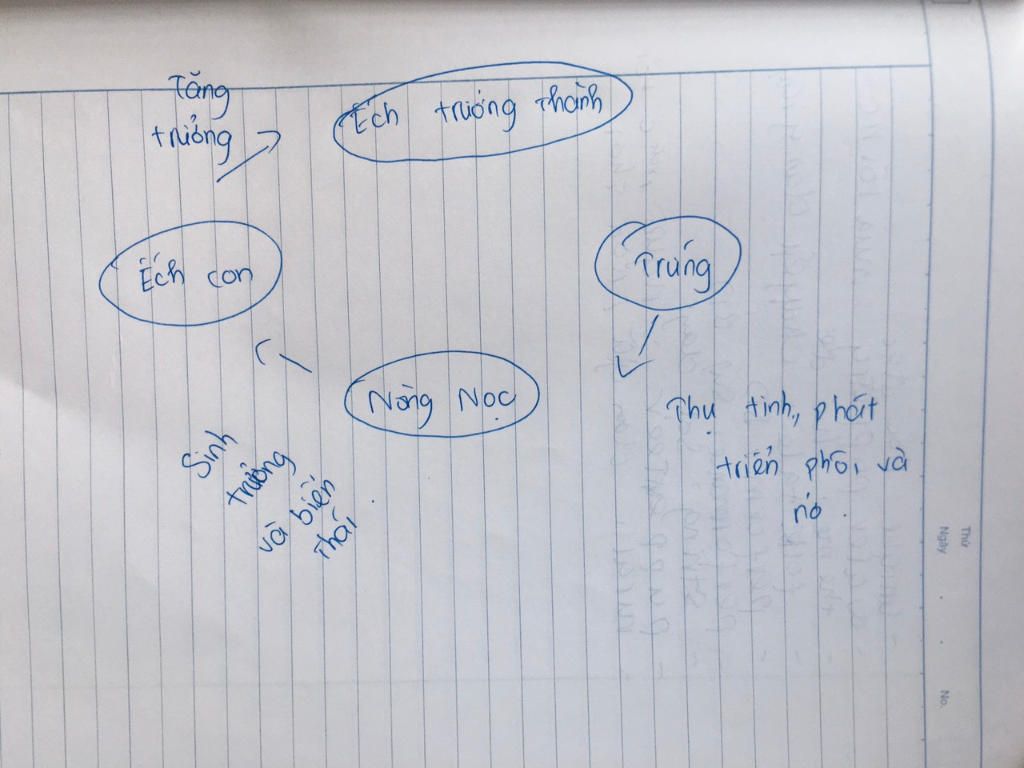 Tăng
trưởng
Ếch trưởng thành
Ếch con
Trứng
Nòng Nọc
Thụ tinh, phát
triển phôi và
nở.
Sinh
trưởng
và biến
thái
Thứ
Ngày
No.